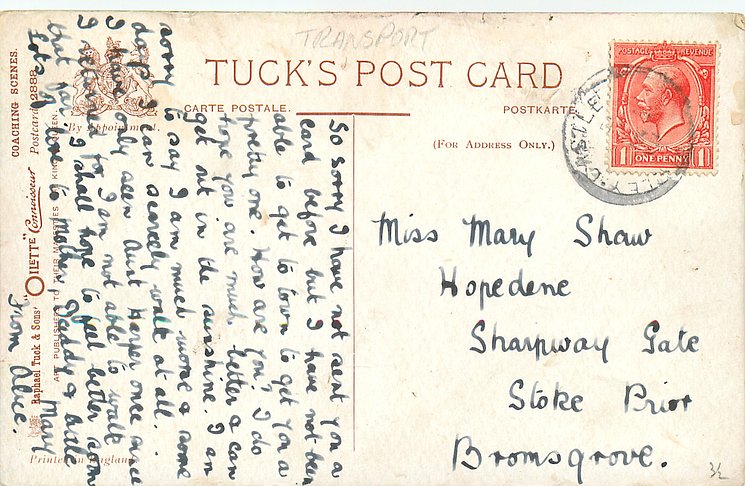 TRANSPORT
TUCK'S POST CARD
CARTE POSTALE.
POSTKARTE
(FOR ADDRESS ONLY.)
By Appointment.
COACHING SCENES.
Postcard 2888
Raphael Tuck & Sons' "OILETTE" Connoisseur
ART PUBLISHERS TO THEIR MAJESTIES KING QUEEN
Printed in England
POSTAGE REVENUE
1 ONE PENNY 1
CASTLE
Miss Mary Shaw
Hopedene
Sharpway Gate
Stoke Prior
Bromsgrove.
So sorry I have not sent you a
card before but I have not been
able to get to town to get you a
pretty one. How are you? I do
hope you are much better & can
get out in the sunshine. I am
sorry to say I am much worse & some
days I can scarcely walk at all.
I have only seen Aunt Harper once since
I returned for I am not able to walk
that far. I shall hope to feel better soon
Lots love to mother Daddy & little Mary
from Alice.
3½